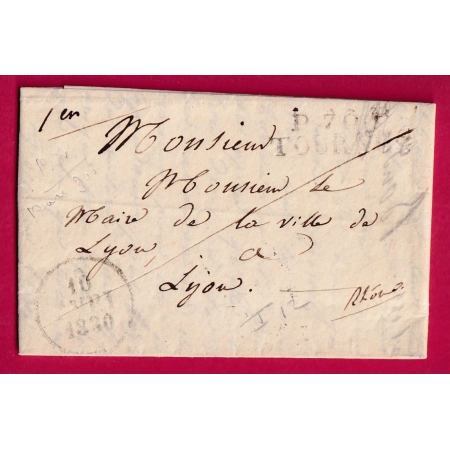 1er
P. 70. P.
TOURNUS
Monsieur
Monsieur le
Maire de la ville de
Lyon, a
Lyon.
Rhône.
10
1830
I 12